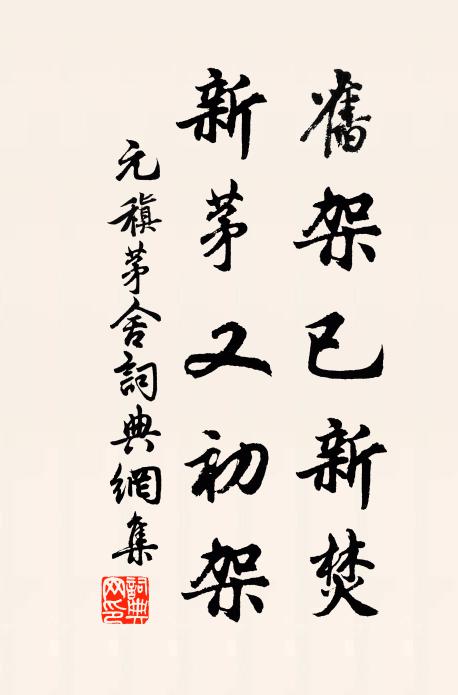 舊架已新焚
新茅又初架
元稹茅舍詞典網集
詞典網印